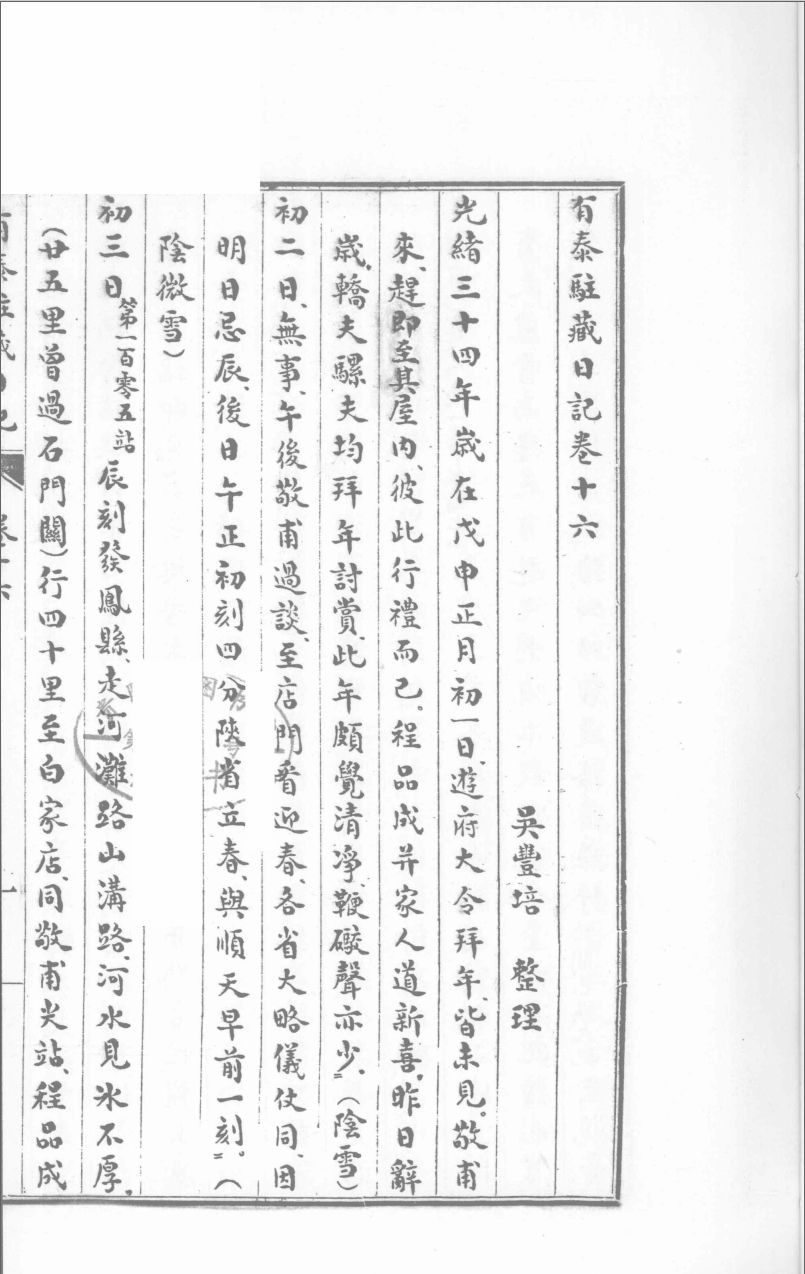 有泰駐藏日記卷十六
吳豐培　整理
光緒三十四年歲在戊申正月初一日、遊府大令拜年、皆未見。敬甫
來、趕即至其屋內、彼此行禮而已。程品成并家人道新喜、昨日辭
歲、轎夫騾夫均拜年討賞、此年頗覺清凈、鞭礮聲亦少。（陰雪）
初二日、無事、午後敬甫過談、至店門看迎春、各省大略儀仗同、因
明日忌辰、後日午正初刻四分陝省立春、與順天早前一刻。（
陰微雪）
初三日第一百零五站辰刻發鳳縣、走河灘路山溝路、河水見氷不厚。
（廿五里曾過石門關）行四十里至白家店、同敬甫尖站、程品成
有泰駐藏日記　卷十六　一